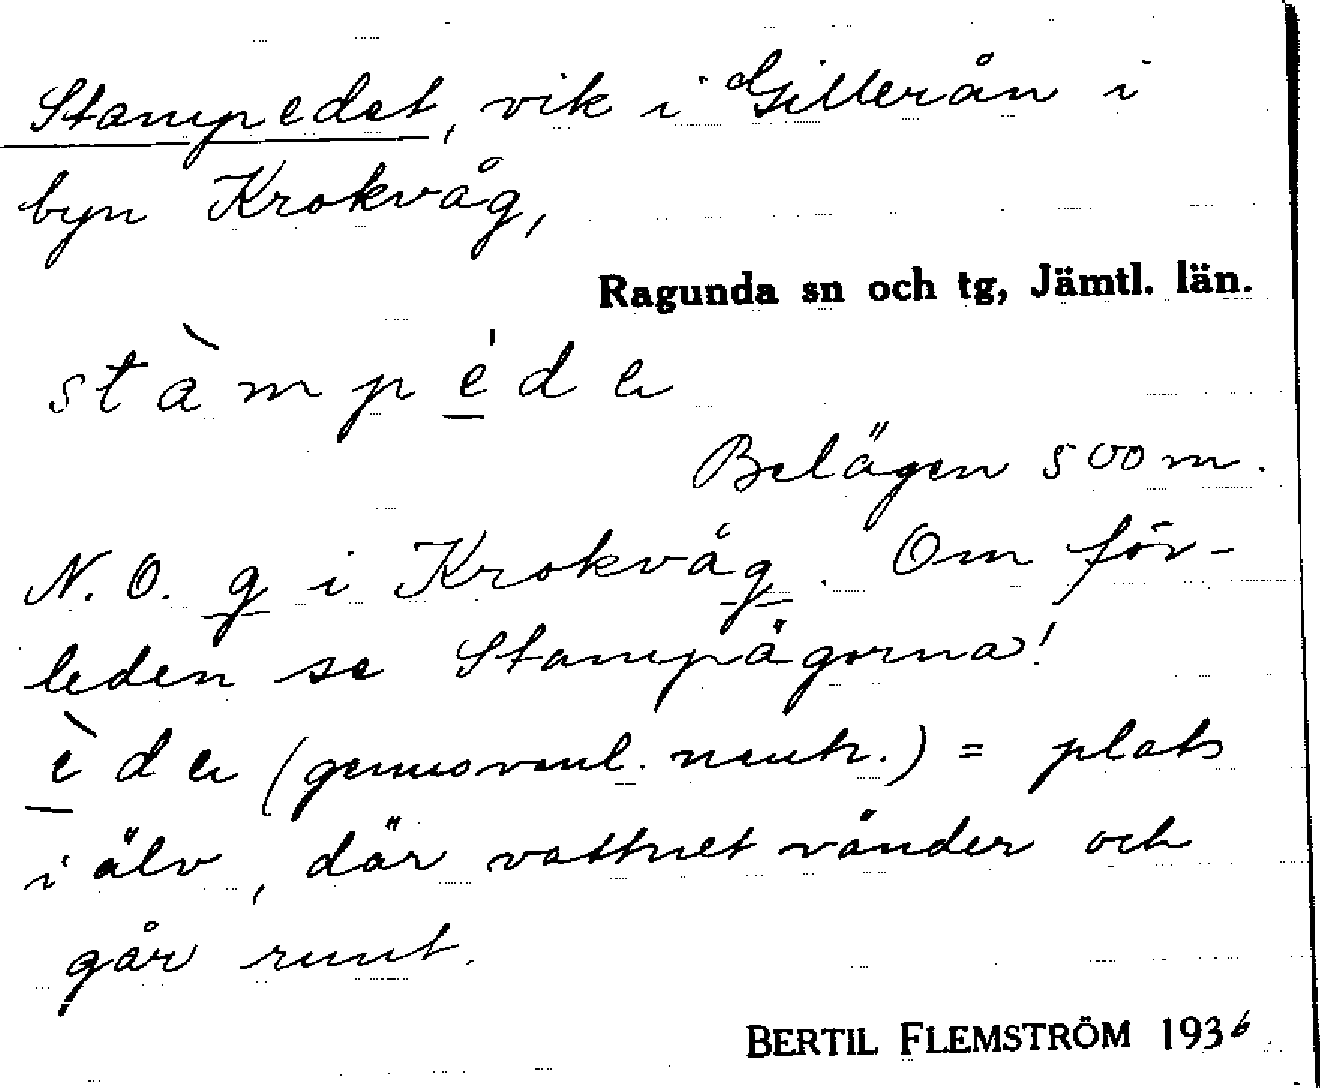 Stampedet, vik i Gillerån i
byn Krokvåg,
Ragunda sn och tg, Jämtl. län.
stàmpéde
Belägen 500 m.
N.O. g i Krokvåg. Om för-
leden se Stampågorna!
ède (genus vanl. neutr.) = plats
i älv, där vattnet vänder och
går runt.
BERTIL FLEMSTRÖM 1936